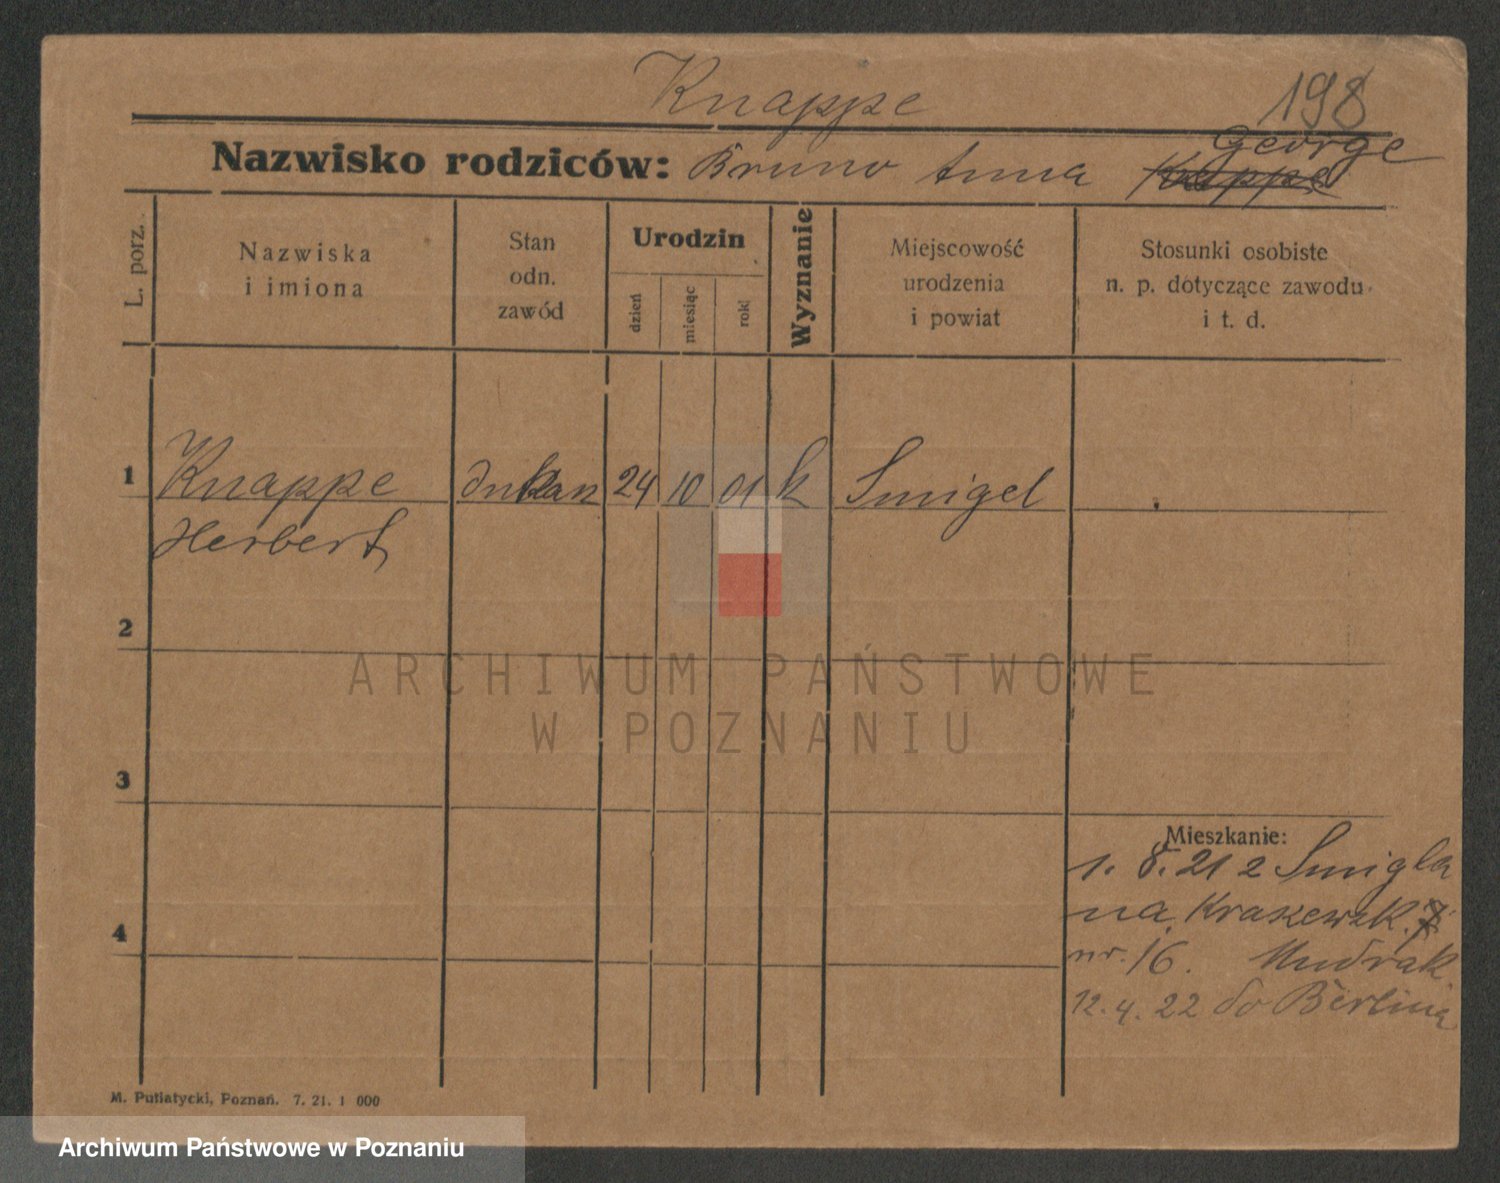 Knappe
198
Nazwisko rodziców: Bruno Anna Knappe George
L. porz.
Nazwiska
i imiona
Stan
odn.
zawód
Urodzin
dzień
miesiąc
rok
Wyznanie
Miejscowość
urodzenia
i powiat
Stosunki osobiste
n. p. dotyczące zawodu
i t. d.
1 Knappe 24 10 01 k Smigel
Herbert
2
3
4
Mieszkanie:
1. 8. 21 z Smigla
na Kraszewsk. 7
nr. 16. Mudrak
12. 4. 22 do Berlina
M. Putiatycki, Poznań. 7. 21. 1 000
ARCHIWUM PAŃSTWOWE
W POZNANIU
Archiwum Państwowe w Poznaniu